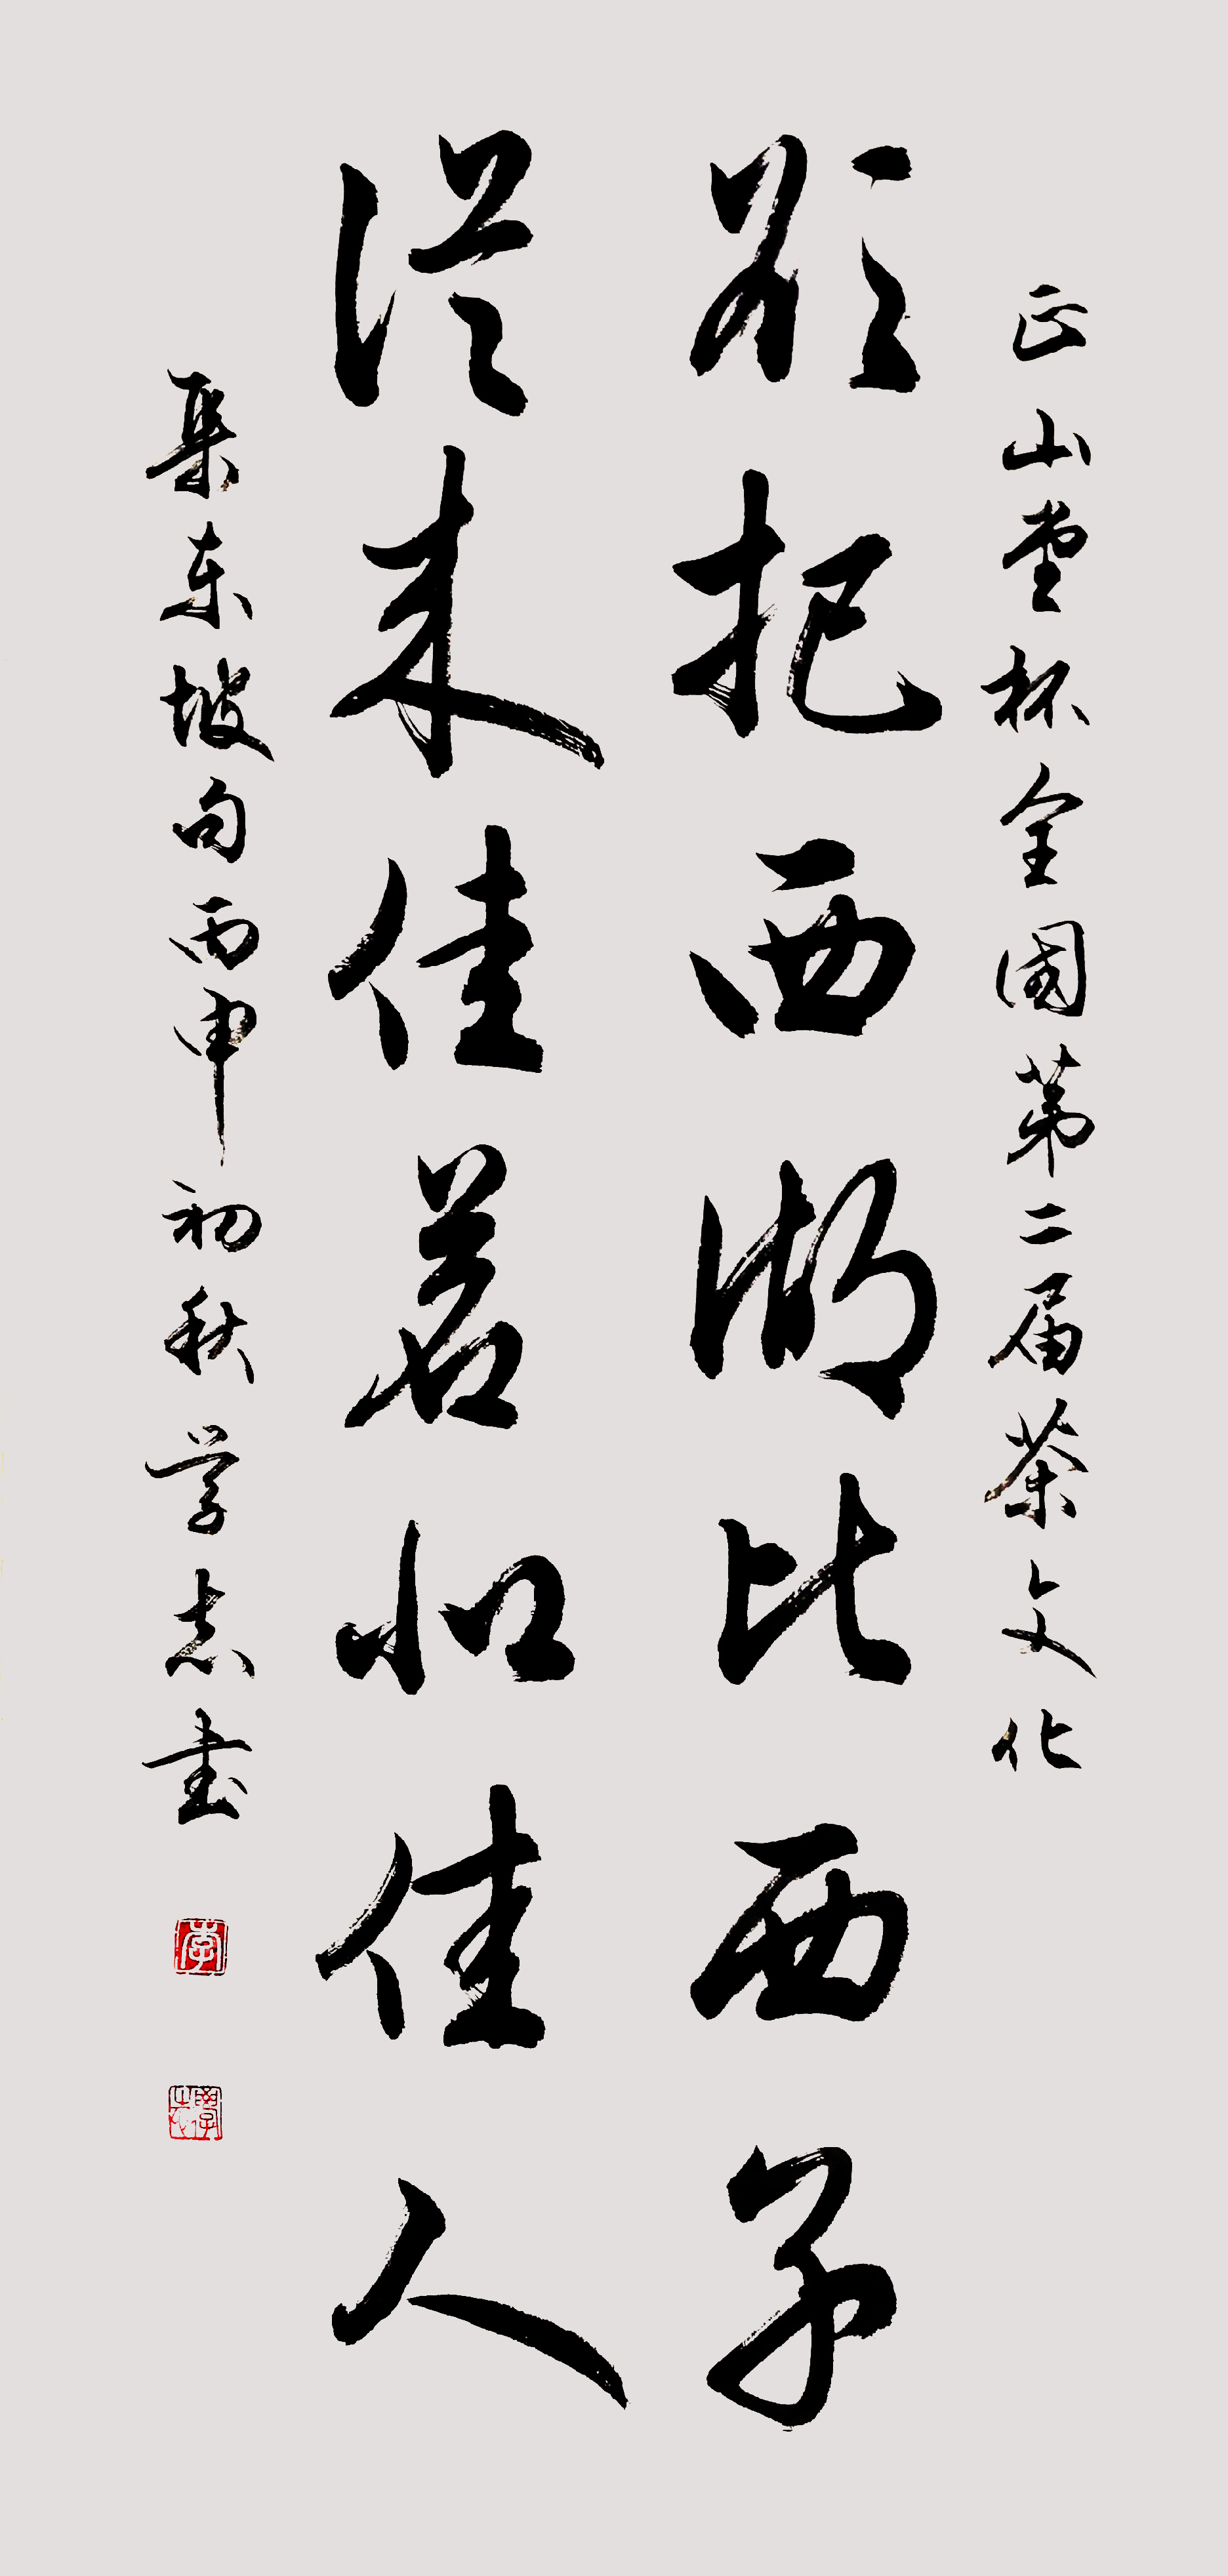 正山堂杯全國第二届茶文化
欲把西湖比西子
從来佳茗似佳人
集東坡句丙申初秋学志書
李
學志